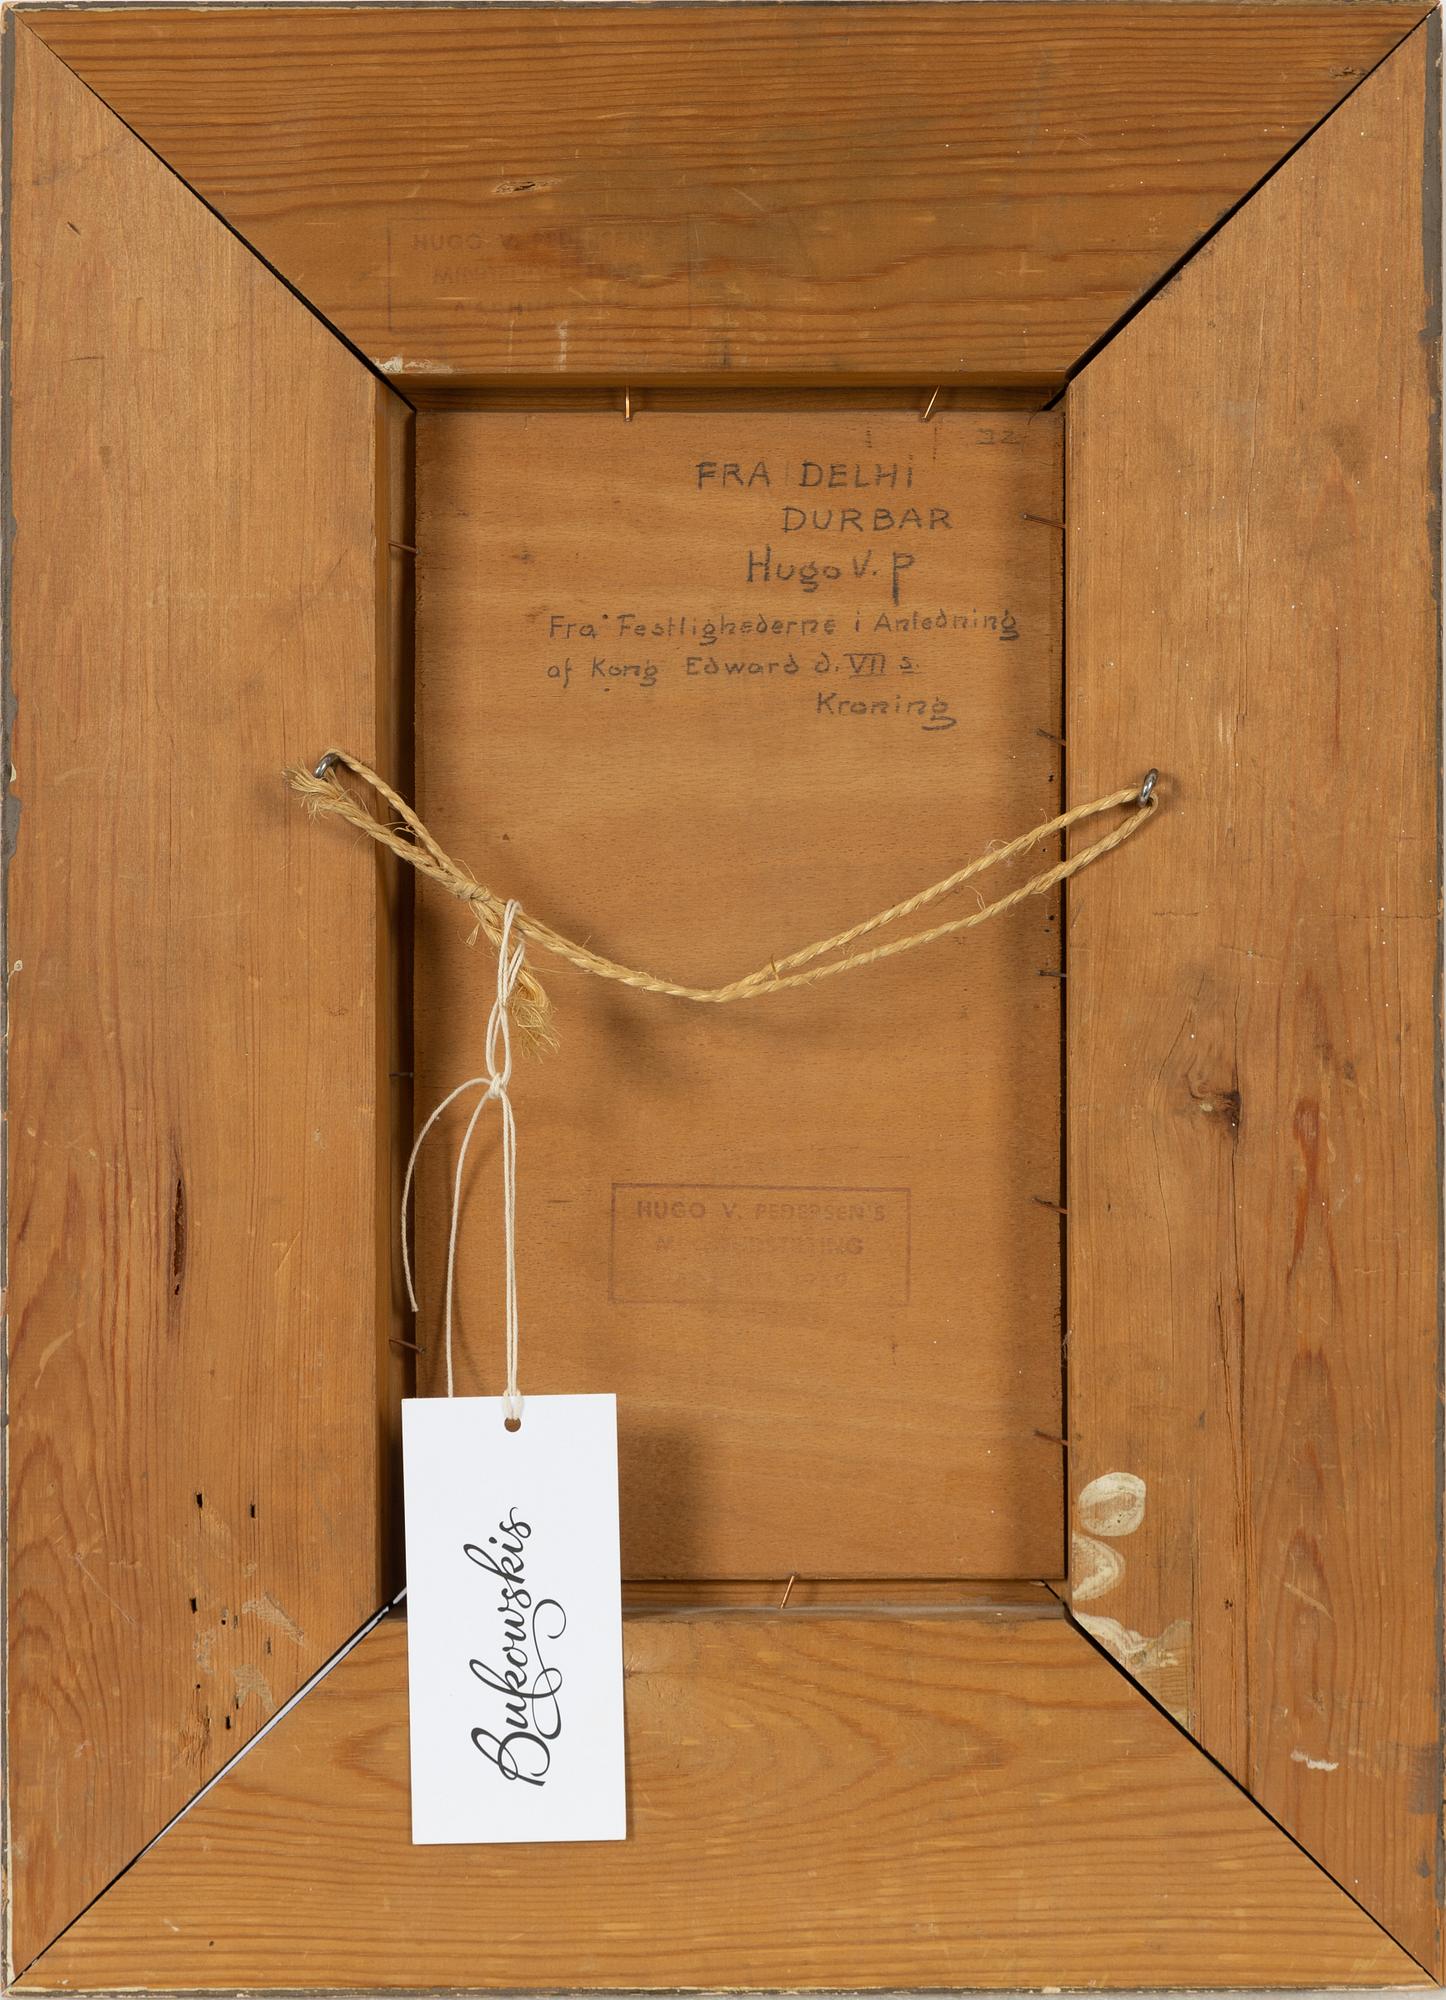 HUGO V. PEDERSEN'S
32
FRA DELHi
DURBAR
Hugo V. P
Fra Festlighederne i Anledning
af Kong Edward d. VII s.
Kroning
HUGO V. PEDERSEN'S
MINDEUDSTILLING
Bukowskis